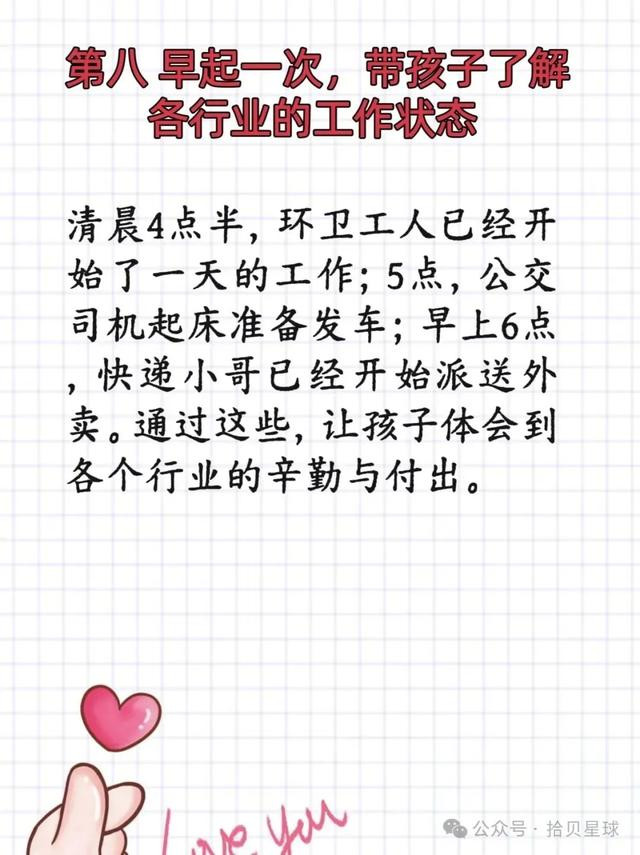 第八 早起一次，带孩子了解
各行业的工作状态
清晨4点半，环卫工人已经开
始了一天的工作；5点，公交
司机起床准备发车；早上6点
，快递小哥已经开始派送外
卖。通过这些，让孩子体会到
各个行业的辛勤与付出。
Love You
公众号·拾贝星球